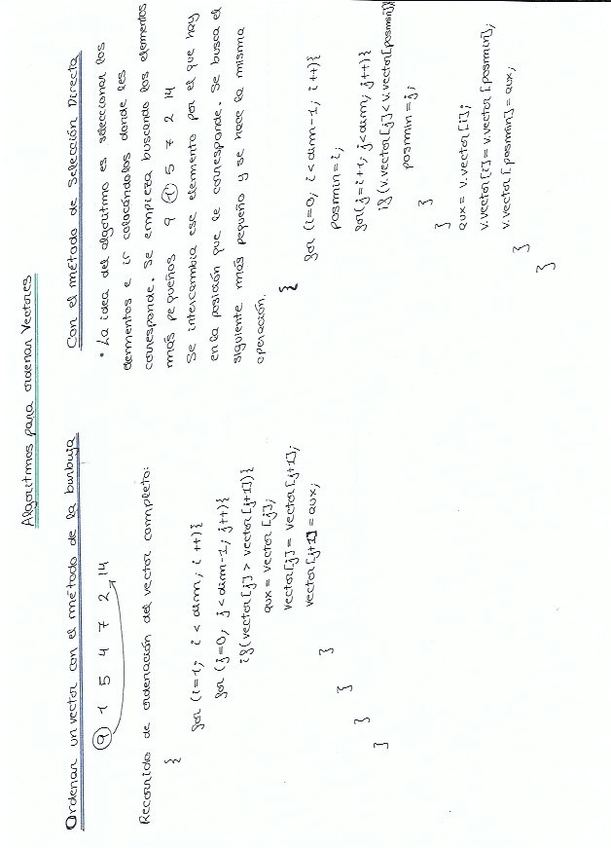 Algoritmos para ordenar Vectores
Ordenar un vector con el método de la burbuja
9 1 5 4 7 2 14
Recorrido de ordenación del vector completo:
{
for (i=1; i < dim; i++){
for (j=0; j<dim-1; j++){
if(vector[j] > vector[j+1]){
aux = vector [j];
vector[j] = vector[j+1];
vector[j+1] = aux;
}
}
}
}
Con el método de Selección Directa
• La idea del algoritmo es seleccionar los
elementos e ir colocándolos donde les
corresponde. Se empieza buscando los elementos
más pequeños 9 1 5 7 2 14
Se intercambia ese elemento por el que hay
en la posición que le corresponde. Se busca el
siguiente más pequeño y se hace la misma
operación.
{
for (i=0; i<dim-1; i++){
posmin=i;
for(j=i+1; j<dim; j++){
if(v.vector[j]<v.vector[posmin]){
posmin=j;
}
}
aux = v.vector[i];
v.vector[i]=v.vector[posmin];
v.vector[posmin]=aux;
}
}